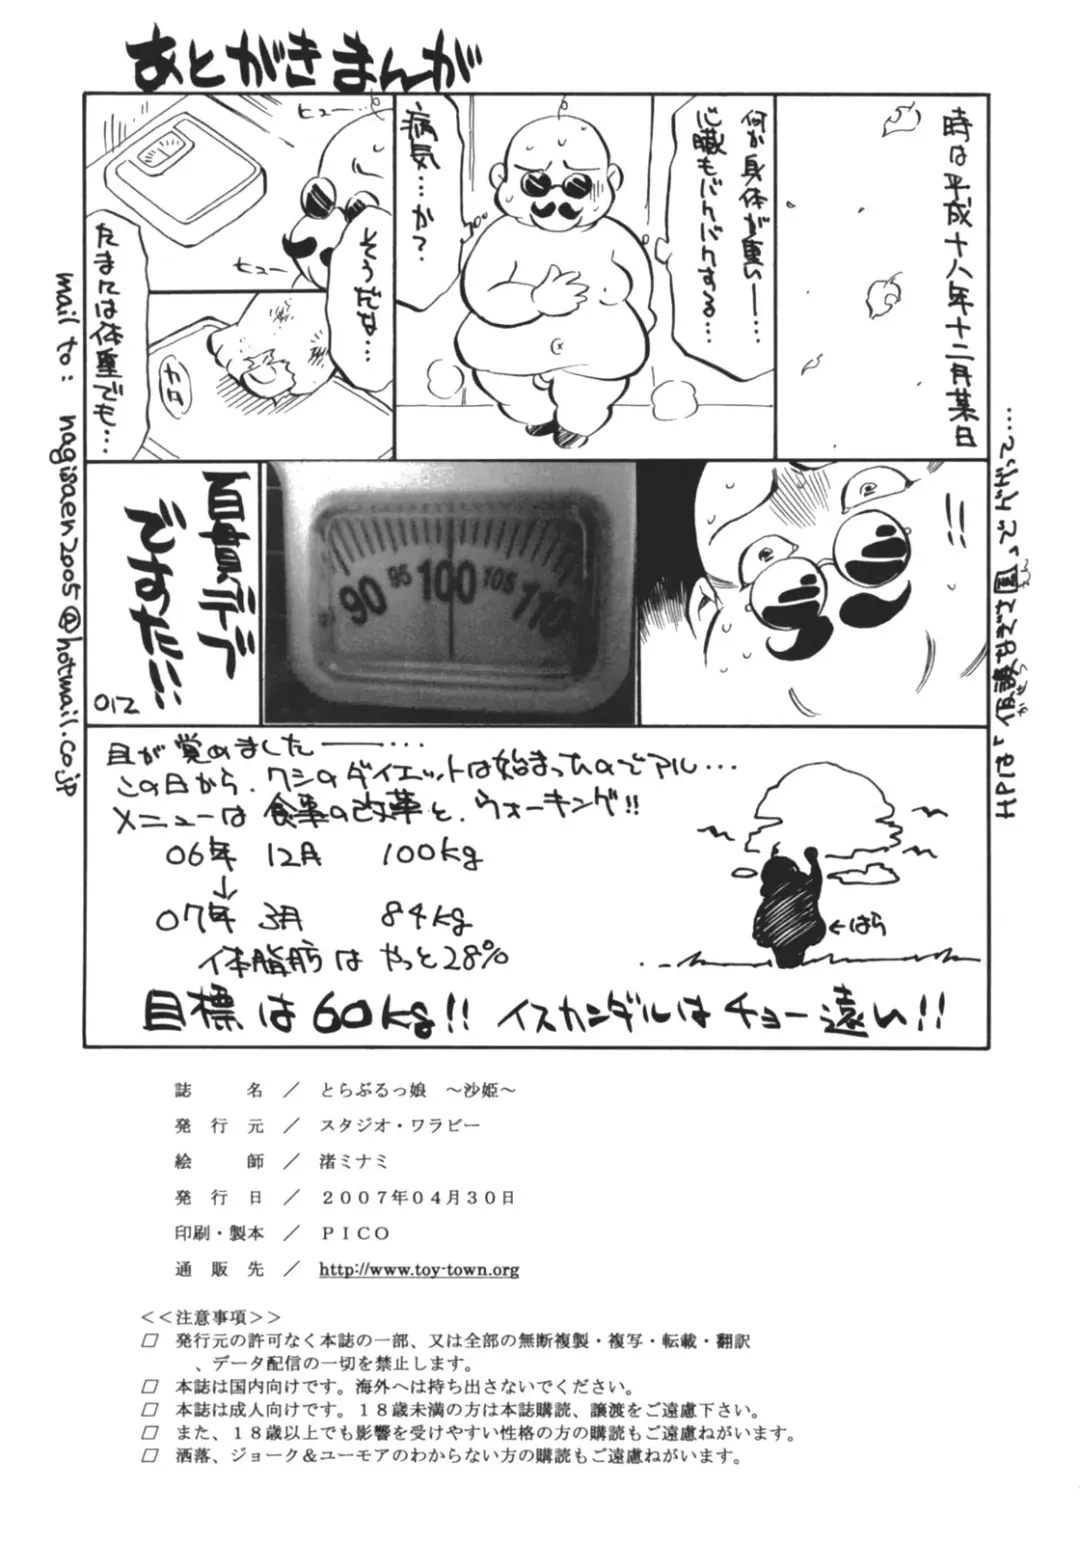 あとがきまんが
時は平成十八年十二月某日
何か身体が重い──…
心臓もバクバクする…
病気…か?
ヒュー…
そうだな…
ヒュー
たまには体重でも…
カタ
!!
90 95 100 105 110
百貫デブ
でした!!!
012
目が覚めました──…
この日から、ワシのダイエットは始まったのでアル…
メニューは食事の改革と、ウォーキング!!
06年 12月 100kg
↓
07年 3月 84kg
体脂肪は やっと28%
←はら
目標は60kg!! イスカンダルはチョー遠い!!
mail to: nagisaen2005@hotmail.co.jp
誌名 / とらぶるっ娘 ～沙姫～
発行元 / スタジオ・ワラビー
絵師 / 渚ミナミ
発行日 / 2007年04月30日
印刷・製本 / PICO
通販先 / http://www.toy-town.org
<<注意事項>>
□ 発行元の許可なく本誌の一部、又は全部の無断複製・複写・転載・翻訳
、データ配信の一切を禁止します。
□ 本誌は国内向けです。海外へは持ち出さないでください。
□ 本誌は成人向けです。18歳未満の方は本誌購読、譲渡をご遠慮下さい。
□ また、18歳以上でも影響を受けやすい性格の方の購読もご遠慮ねがいます。
□ 洒落、ジョーク＆ユーモアのわからない方の購読もご遠慮ねがいます。